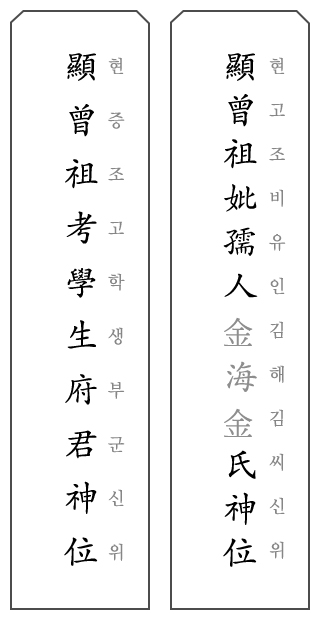 顯曾祖考學生府君神位
현증조고학생부군신위
顯曾祖妣孺人金海金氏神位
현고조비유인김해김씨신위